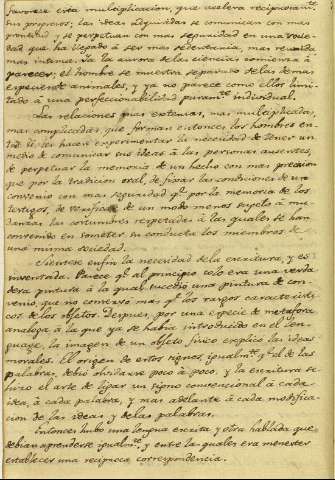 favorece esta multiplicacion, que acelera reciprocam.te
sus progresos; las ideas adquiridas se comunican con mas
prontitud y se perpetuan con mas seguridad en una socie-
dad que ha llegado á ser mas sedentaria, mas reunida
mas intima. Ya la aurora de las ciencias comienza á
parecer; el hombre se muestra separado de las demas
especies de animales, y ya no parece como ellos limi-
tado á una perfeccionabilidad puram.te individual.
Las relaciones mas extensas, mas multiplicadas,
mas complicadas que forman entonces los hombres en-
tre si, les hacen experimentar la necesidad de tener un
medio de comunicar sus ideas á las personas ausentes,
de perpetuar la memoria de un hecho con mas precision
que por la tradicion oral, de fixar las condiciones de un
convenio con mas seguridad q.e por la memoria de los
testigos, de verificar de un modo menos sujeto á mu-
danzas las costumbres respetadas á las quales se han
convenido en someter su conducta los miembros de
una misma sociedad.
Sientese enfin la necesidad de la escritura, y es
inventada. Parece q.e al principio solo era una verda-
dera pintura á la qual sucedió una pintura de con-
venio, que no conservó mas q.e los rasgos caracteristi-
cos de los objetos. Despues, por una especie de metafora
analoga á la que ya se habia introducido en el len-
guage, la imagen de un objeto fisico explicó las ideas
morales. El origen de estos signos igualm.te q.e el de las
palabras, debió olvidarse poco á poco, y la escritura se
hizo el arte de ligar un signo convencional á cada
idea, á cada palabra, y mas adelante á cada modifica-
cion de las ideas y de las palabras.
Entonces hubo una lengua escrita y otra hablada que
debian aprenderse igualm.te, y entre las quales era menester
establecer una reciproca correspondencia.